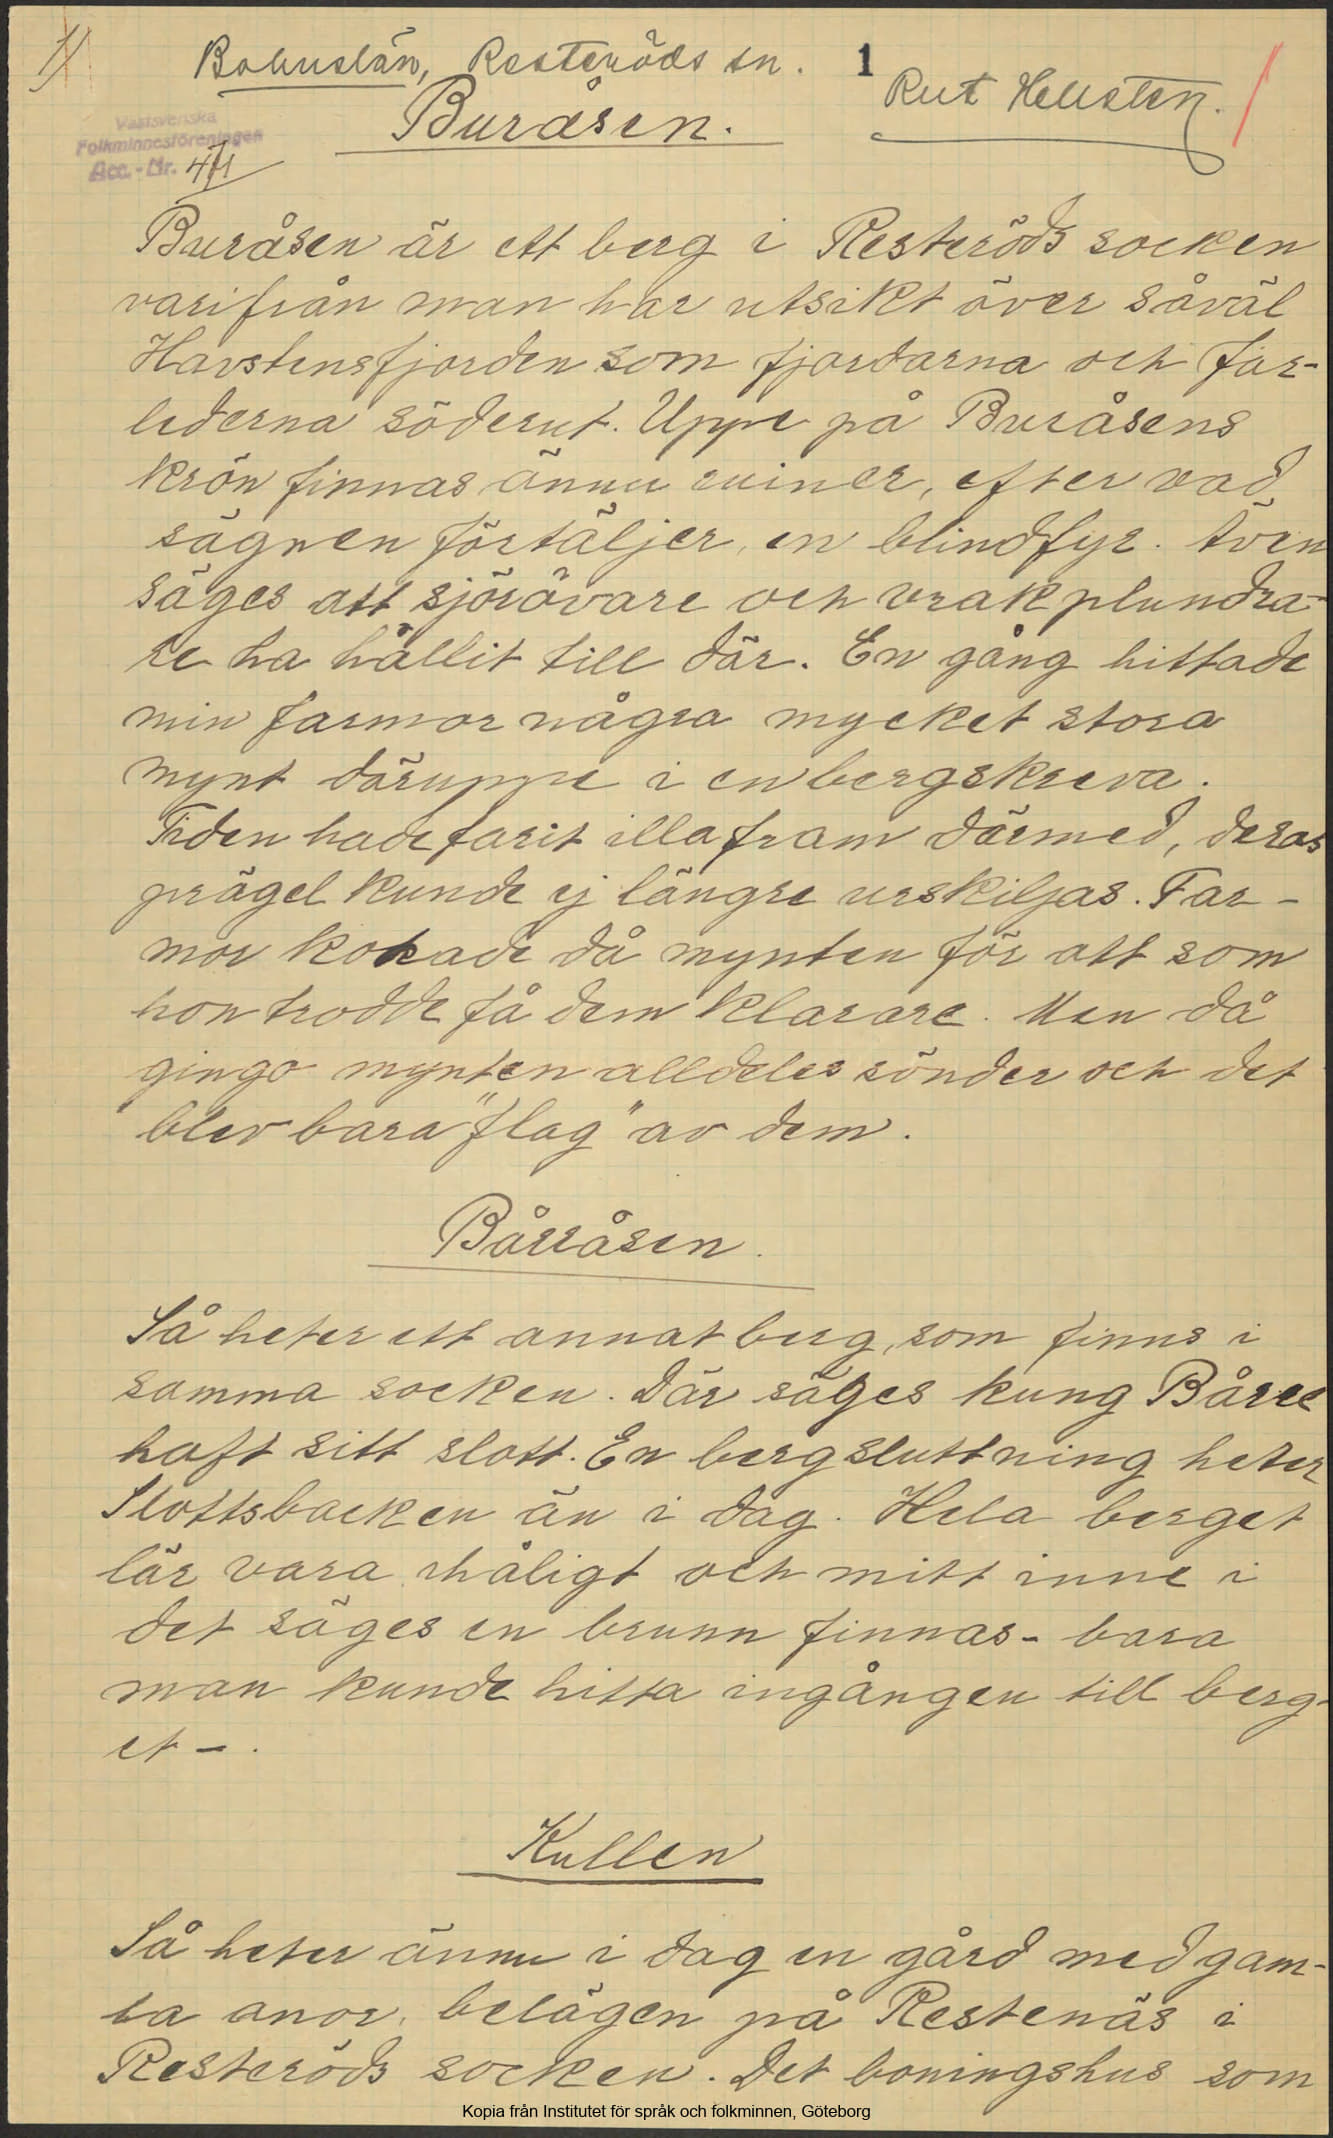 1)
Bohuslän, Resteröds sn. 1
Rut Hellsten.
Buråsen.
Västsvenska
Folkminnesföreningen
Acc.-Nr. 471
Buråsen är ett berg i Resteröds socken
varifrån man har utsikt över såväl
Havstensfjorden som fjordarna och far-
lederna söderut. Uppe på Buråsens
krön finnas ännu ruiner, efter vad
sägnen förtäljer, en blindfyr. Även
säges att sjörövare och vrakplundra-
re ha hållit till där. En gång hittade
min farmor några mycket stora
mynt däruppe i en bergskreva.
Tiden hade farit illa fram därmed, deras
prägel kunde ej längre urskiljas. Far-
mor kokade då mynten för att som
hon trodde få dem klarare. Men då
gingo mynten alldeles sönder och det
blev bara "flag" av dem.
Bårråsen.
Så heter ett annat berg, som finns i
samma socken. Där säges kung Bårre
haft sitt slott. En bergsluttning heter
Slottsbacken än i dag. Hela berget
lär vara ihåligt och mitt inne i
det säges en brunn finnas - bara
man kunde hitta ingången till berg-
et - .
Kullen
Så heter ännu i dag en gård med gam-
la anor, belägen på Restenäs i
Resteröds socken. Det boningshus som
Kopia från Institutet för språk och folkminnen, Göteborg